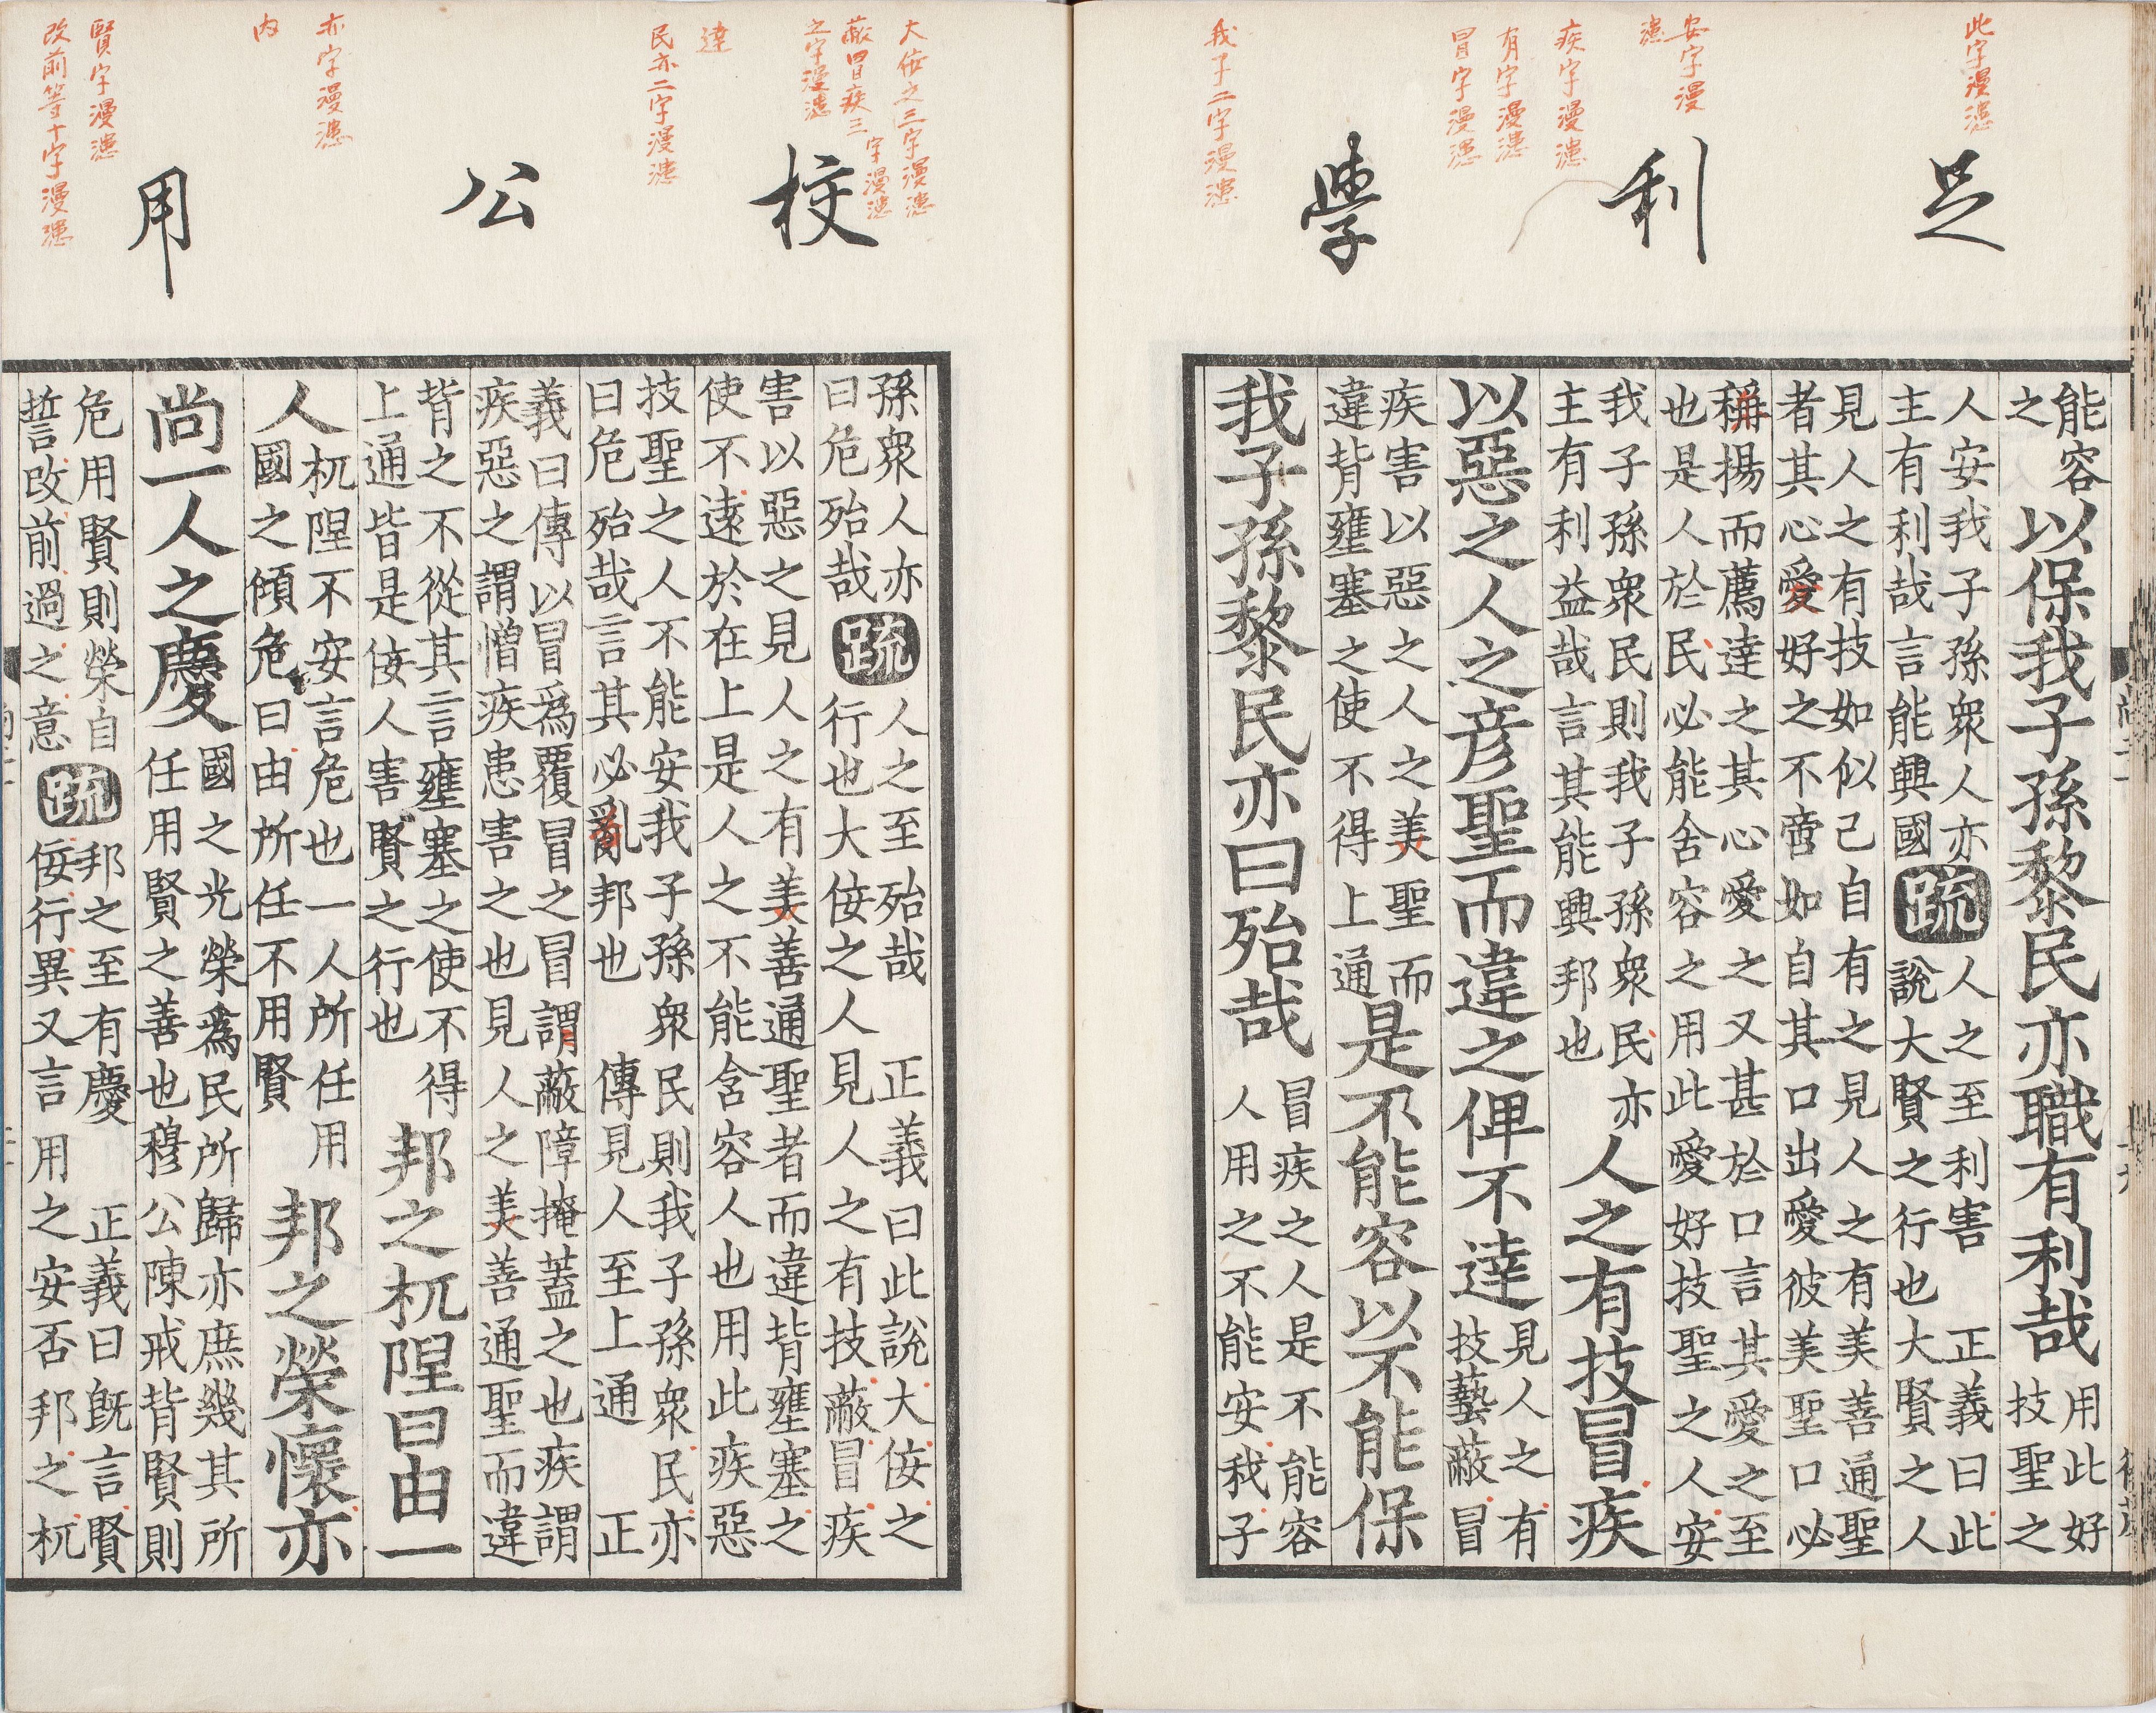 此字漫漶
安字漫漶
疾字漫漶
有字漫漶
冒字漫漶
我子二字漫漶
足利學
能容
之
以保我子孫黎民亦職有利哉
用此好
技聖之
人安我子孫衆人亦
主有利哉言能興國
疏
人之至利害 正義曰此
說大賢之行也大賢之人
見人之有技如似己自有之見人之有美善通聖
者其心愛好之不啻如自其口出愛彼美聖口必
稱揚而薦達之其心愛之又甚於口言其愛之至
也是人於民必能舍容之用此愛好技聖之人安
我子孫衆民則我子孫衆民亦
主有利益哉言其能興邦也
人之有技冒疾
以惡之人之彥聖而違之俾不達
見人之有
技藝蔽冒
疾害以惡之人之美聖而
違背壅塞之使不得上通
是不能容以不能保
我子孫黎民亦曰殆哉
冒疾之人是不能容
人用之不能安我子
大佞之三字漫漶
蔽冒疾三字漫漶
之字漫漶
達
民亦二字漫漶
亦字漫漶
内
賢字漫漶
改前等十字漫漶
校公用
孫衆人亦
曰危殆哉
疏
人之至殆哉 正義曰此說大佞之
行也大佞之人見人之有技蔽冒疾
害以惡之見人之有美善通聖者而違背壅塞之
使不逺於在上是人之不能含容人也用此疾惡
技聖之人不能安我子孫衆民則我子孫衆民亦
曰危殆哉言其必亂邦也 傳見人至上通 正
義曰傳以冒爲覆冒之冒謂蔽障掩蓋之也疾謂
疾惡之謂憎疾患害之也見人之美善通聖而違
背之不從其言壅塞之使不得
上通皆是佞人害賢之行也
邦之杌隉曰由一
人
杌隉不安言危也一人所任用
國之傾危曰由所任不用賢
邦之榮懷亦
尚一人之慶
國之光榮爲民所歸亦庶幾其所
任用賢之善也穆公陳戒背賢則
危用賢則榮自
誓改前過之意
疏
邦之至有慶 正義曰旣言賢
佞行異又言用之安否邦之杌